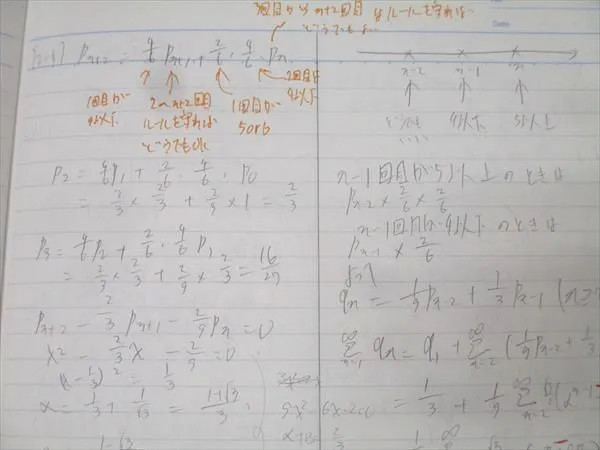 3回目から n+2回目 はルールを守れば
どうでもよい
P_{n+2} = 4/6 P_{n+1} + 2/6 · 4/6 · P_n
1回目が
4以下
2〜n+2回目
ルールを守れば
どうでもOK
1回目が
5or6
2回目は
4以下
P_2 = 4/6 P_1 + 2/6 · 4/6 · P_0
= 2/3 × 2/3 + 2/9 × 1 = 2/3
P_3 = 4/6 P_2 + 2/6 · 4/6 P_1
= 2/3 × 2/3 + 2/9 × 2/3 = 16/27
P_{n+2} - 2/3 P_{n+1} - 2/9 P_n = 0
x² - 2/3 x - 2/9 = 0
(x - 1/3)² = 1/3
x = 1/3 ± 1/√3 = (1±√3)/3
n-2 n-1 n
どうでも
いい
4以下
5以上
n-1回目が5以上のときは
P_{n-2} × 2/6 × 2/6
n-1回目が4以下のときは
P_{n-1} × 2/6
より
q_n = 1/9 P_{n-2} + 1/3 P_{n-1} (n≥
∞Σn=1 q_n = q_1 + ∞Σn=2 (1/9 P_{n-2} + 1/3
9x² - 6x - 2 = 0
= 1/3 + 1/9 ∞Σn=2